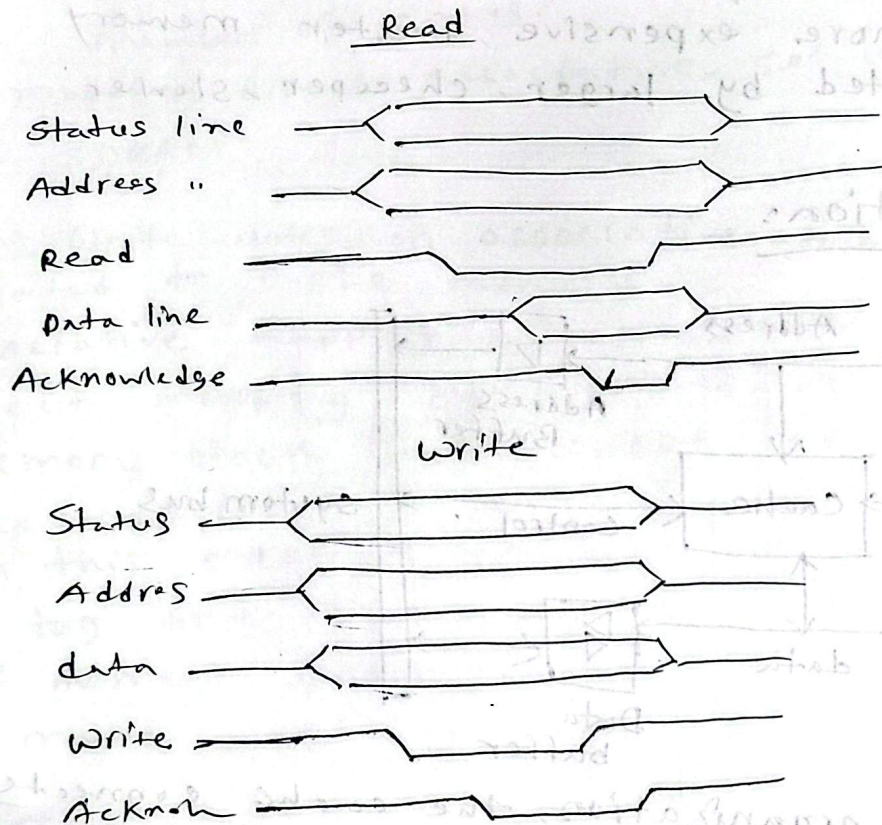 Read
Status line
Address "
Read
Data line
Acknowledge
Write
Status
Addres
data
Write
Acknow